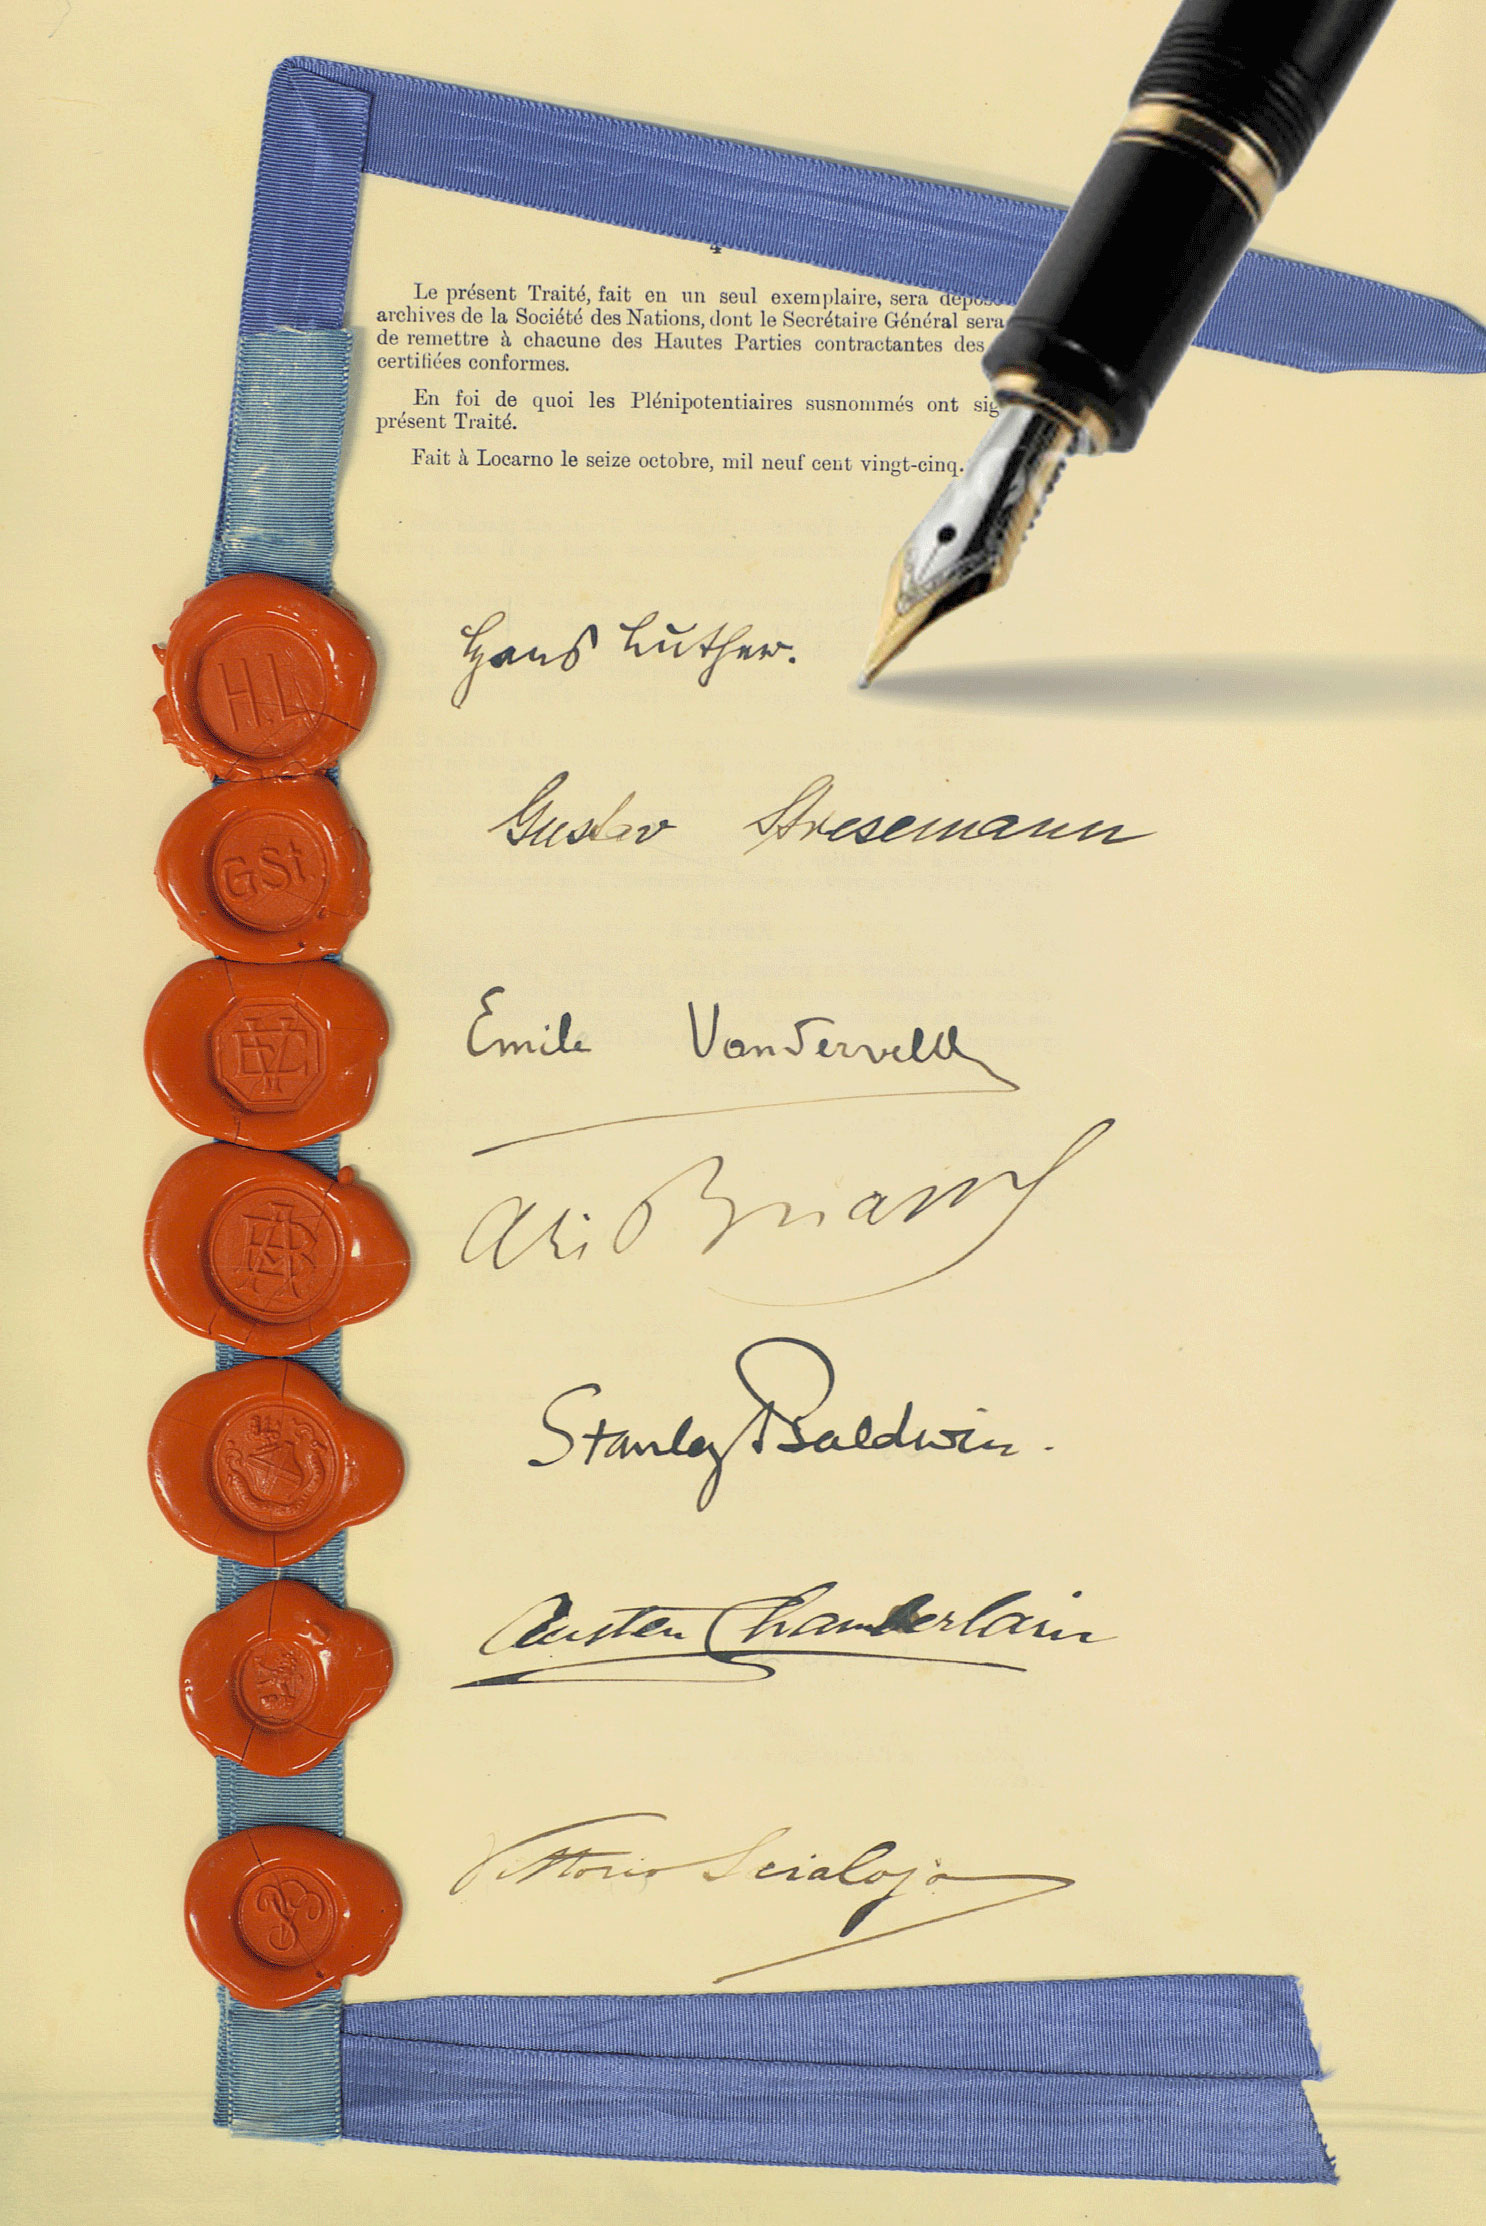 4
Le présent Traité, fait en un seul exemplaire, sera déposé
archives de la Société des Nations, dont le Secrétaire Général sera
de remettre à chacune des Hautes Parties contractantes des
certifiées conformes.
En foi de quoi les Plénipotentiaires susnommés ont sig
présent Traité.
Fait à Locarno le seize octobre, mil neuf cent vingt-cinq.
Hans Luther.
H.L
Gustav Stresemann
GSt.
Emile Vandervelde
EV
Ari Briand
AB
Stanley Baldwin.
Austen Chamberlain
Vittorio Scialoja